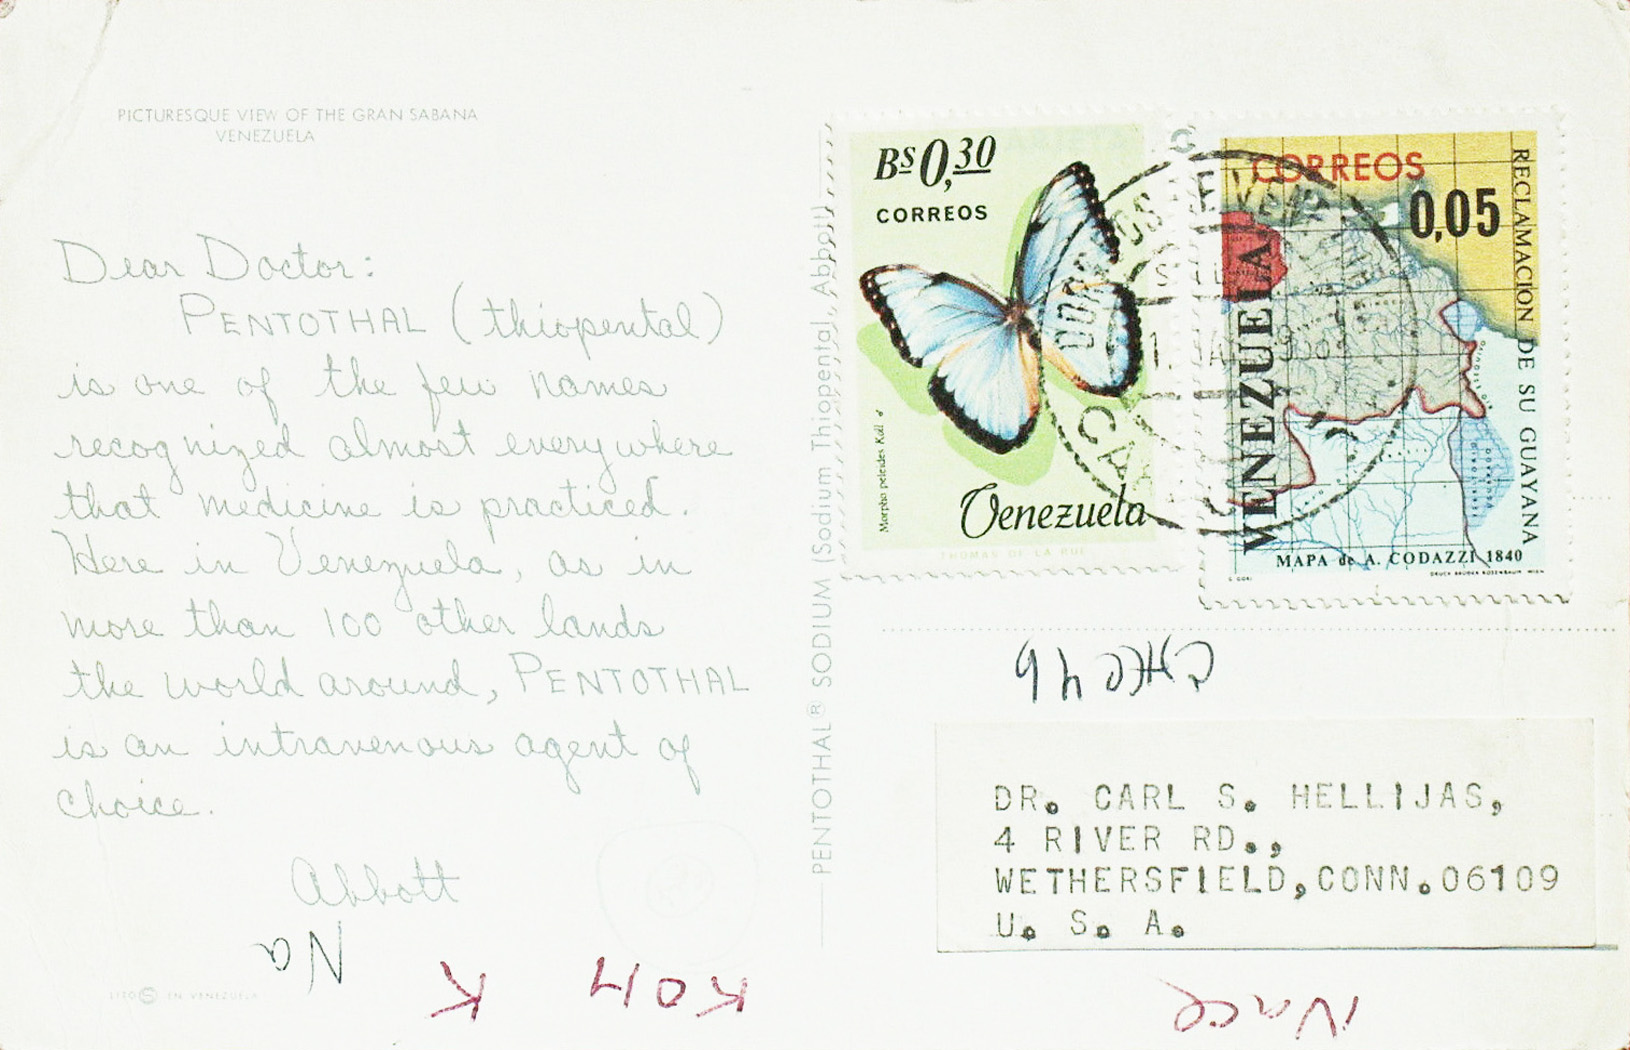 PICTURESQUE VIEW OF THE GRAN SABANA
VENEZUELA
Dear Doctor:
PENTOTHAL (thiopental)
is one of the few names
recognized almost everywhere
that medicine is practiced.
Here in Venezuela, as in
more than 100 other lands
the world around, PENTOTHAL
is an intravenous agent of
choice.
Abbott
Na
K
KOH
LITO EN VENEZUELA
PENTOTHAL® SODIUM (Sodium Thiopental, Abbott)
Bs 0,30
CORREOS
Morpho peleides Koll. ♂
Venezuela
THOMAS DE LA RUE
CORREOS
0,05
RECLAMACION DE SU GUAYANA
VENEZUELA
MAPA de A. CODAZZI 1840
DRUCK BRÜDER ROSENBAUM WIEN
DR. CARL S. HELLIJAS,
4 RIVER RD.,
WETHERSFIELD,CONN.06109
U. S. A.